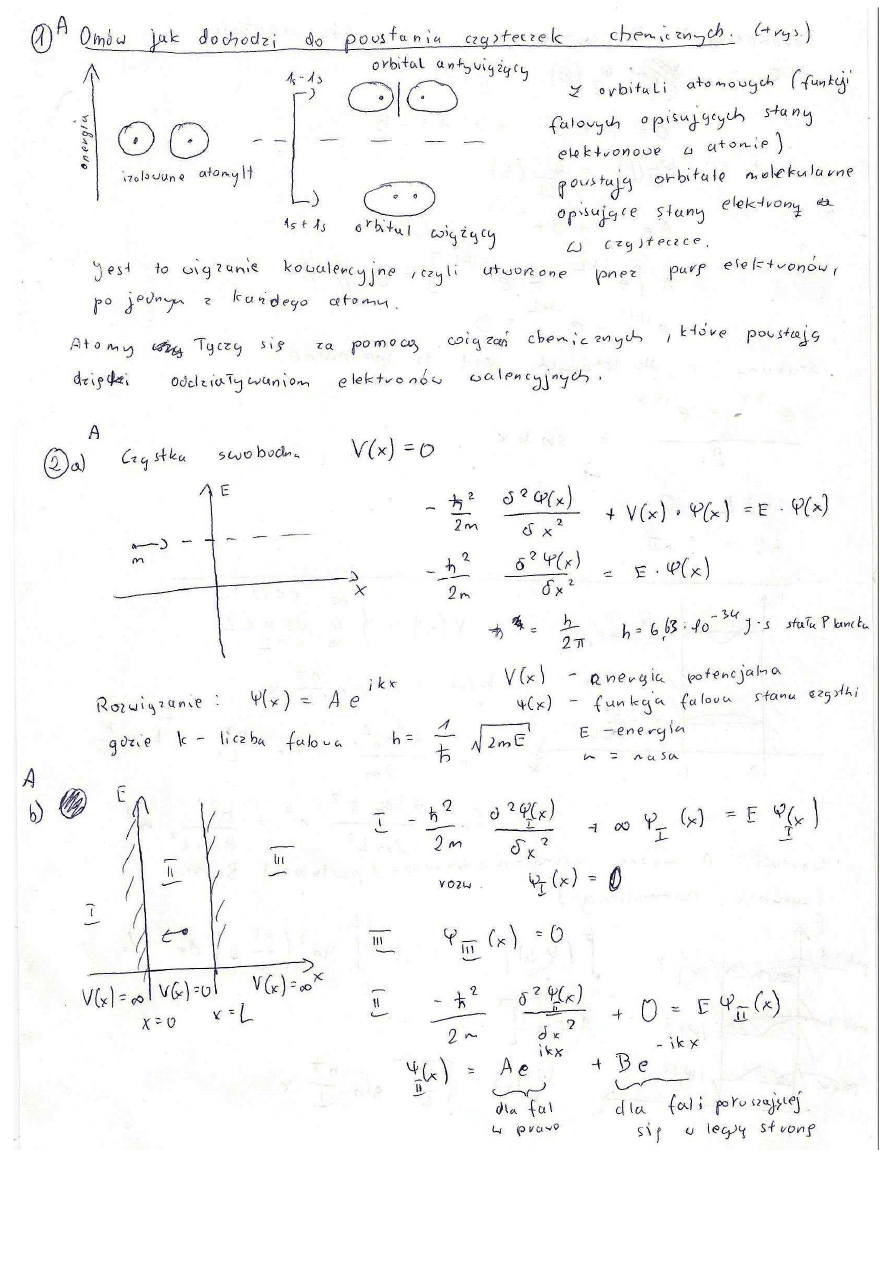 ① A Omów jak dochodzi do powstania cząsteczek chemicznych. (+rys.)
energia
izolowane atomy H
1s-1s
orbital antywiążący
1s+1s orbital wiążący
Z orbitali atomowych (funkcji
falowych opisujących stany
elektronowe w atomie)
powstają orbitale molekularne
opisujące stany elektronów
w cząsteczce.
Jest to wiązanie kowalencyjne, czyli utworzone przez parę elektronów,
po jednym z każdego atomu.
Atomy łączy się za pomocą wiązań chemicznych, które powstają
dzięki oddziaływaniom elektronów walencyjnych.
A
② a) Cząstka swobodna V(x) = 0
E
m
x
- ħ²/2m δ²Ψ(x)/δx² + V(x) · Ψ(x) = E · Ψ(x)
- ħ²/2m δ²Ψ(x)/δx² = E · Ψ(x)
ħ = h/2π h = 6,63 · 10⁻³⁴ J·s stała Plancka
V(x) - energia potencjalna
Ψ(x) - funkcja falowa stanu cząstki
E - energia
m = masa
Rozwiązanie: Ψ(x) = A e^ikx
gdzie k - liczba falowa k = 1/ħ √2mE
A
b)
E
I II III
V(x)=∞ V(x)=0 V(x)=∞ x
x=0 x=L
I - ħ²/2m δ²Ψ_I(x)/δx² + ∞ Ψ_I(x) = E Ψ_I(x)
rozw. Ψ_I(x) = 0
III Ψ_III(x) = 0
II - ħ²/2m δ²Ψ_II(x)/δx² + 0 = E Ψ_II(x)
Ψ_II(x) = Ae^ikx + Be^-ikx
dla fal dla fali poruszającej
w prawo się w lewą stronę